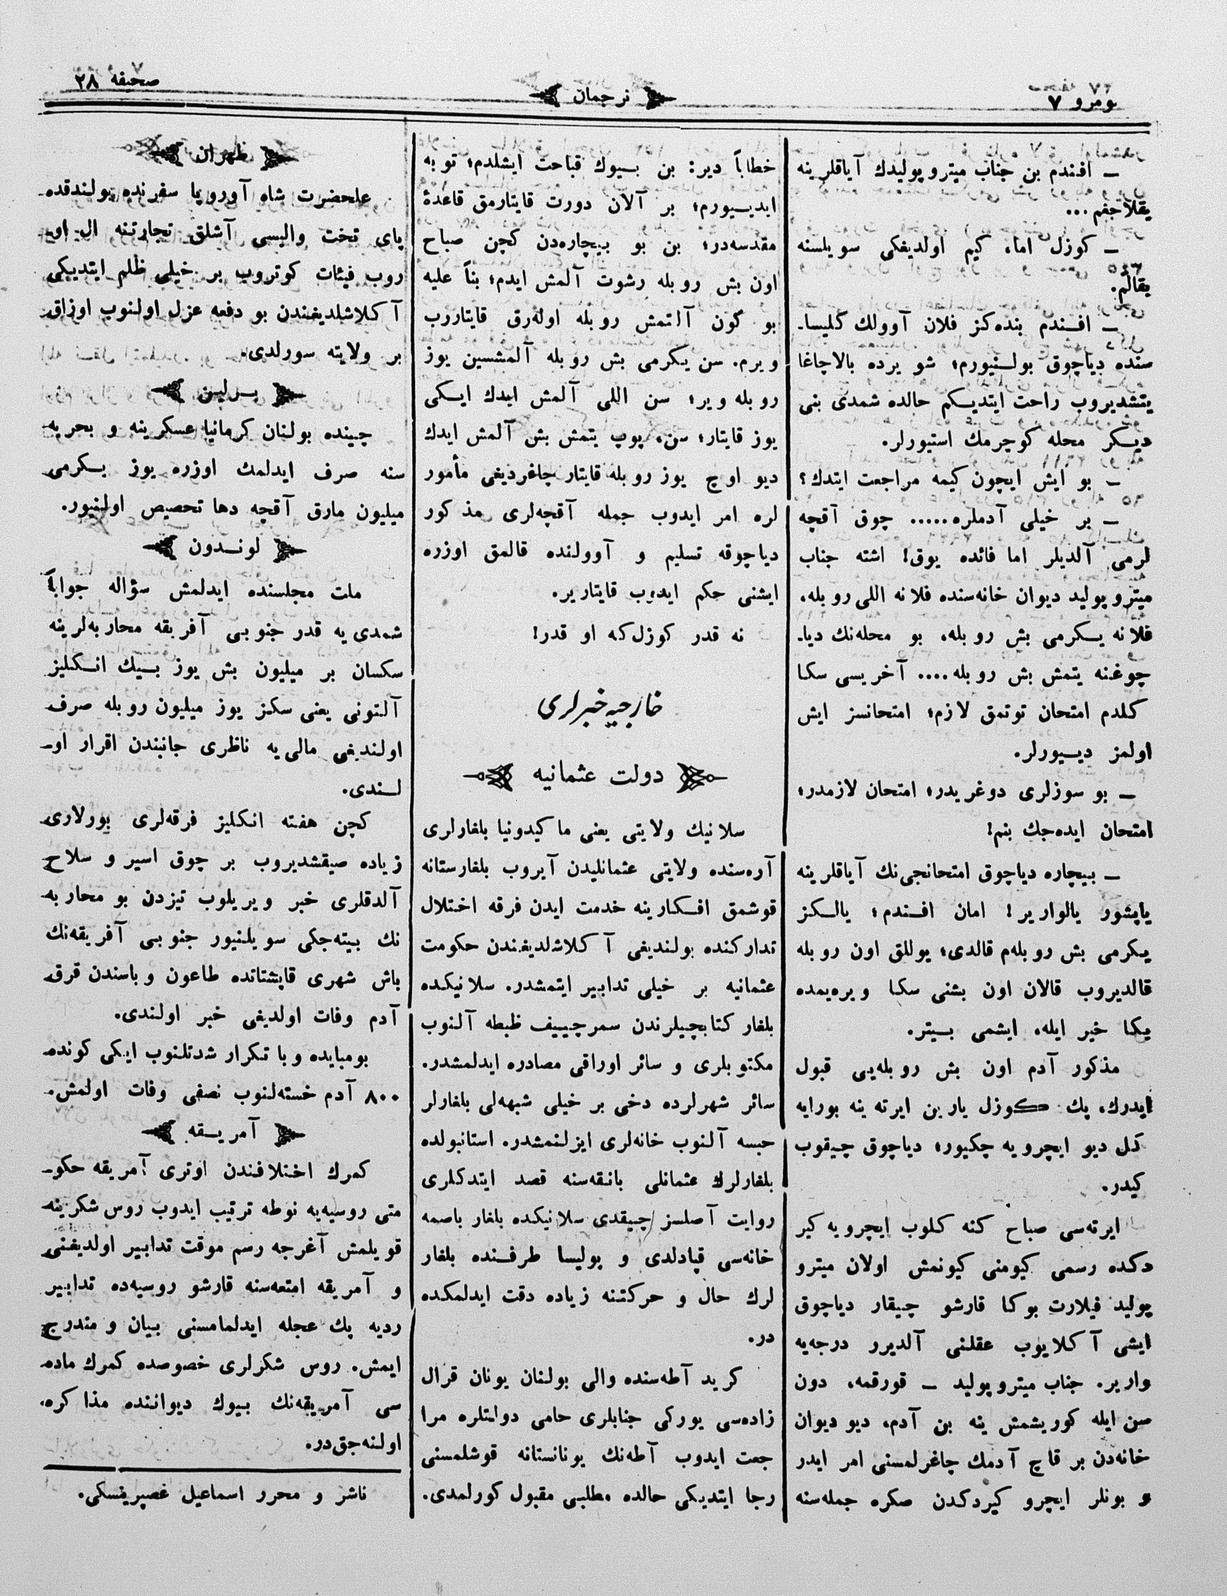 نومرو ۷
ترجمان
صحیفه ۲۸
— افندم بن جناب میتروپولیدك آیاقلرینه
یقلاجغم...
— كوزل اما، كیم اولدیفكی سویلسنه
یقالم.
— افندم بنده‌كز فلان آوولك كلیسا-
سنده دیاچوق بولنیورم؛ شو یرده بالاچاغا
یتشدیروب راحت ایتدیكم حالده شمدی بنی
دیكر محله كوچرمك استیورلر.
— بو ایش ایچون كیمه مراجعت ایتدك؟
— بر خیلی آدملره..... چوق آقچه
لرمی آلدیلر اما فائده یوق! اشته جناب
میتروپولید دیوان خانه‌سنده فلانه اللی روبله،
فلانه یكرمی بش روبله، بو محله‌نك دیا-
چوغنه یتمش بش روبله.... آخریسی سكا
كلدم امتحان توتمق لازم؛ امتحانسز ایش
اولمز دییورلر.
— بو سوزلری دوغریدر؛ امتحان لازمدر؛
امتحان ایده‌جك بنم!
— بیچاره دیاچوق امتحانجی‌نك آیاقلرینه
یاپشور یالواریر! امان افندم؛ یالكز
یكرمی بش روبله‌م قالدی؛ یوللق اون روبله
قالدیروب قالان اون بشنی سكا ویره‌یمده
یكا خیر ایله، ایشمی بیتر.
مذكور آدم اون بش روبله‌یی قبول
ایدرك، پك كوزل یارین ایرته ینه بورایه
كل دیو ایچرویه چكیور؛ دیاچوق چیقوب
كیدر.
ایرته‌سی صباح كنه كلوب ایچرویه كیر
دكده رسمی كیومنی كیونمش اولان میترو
پولید فیلارت بوكا قارشو چیقار دیاچوق
ایشی آكلایوب عقلنی آلدیرو درجه‌یه
واریر. جناب میتروپولید — قورقمه، دون
سن ایله كوریشمش ینه بن آدم، دیو دیوان
خانه‌دن بر قاچ آدمك چاغرلمسنی امر ایدر
و بونلر ایچرو كیردكدن صكره جمله‌سنه
خطاباً دیر: بن بیوك قباحت ایشلدم؛ توبه
ایدییورم؛ بر آلان دورت قایتارمق قاعدهٔ
مقدسه‌در؛ بن بو بیچاره‌دن كچن صباح
اون بش روبله رشوت آلمش ایدم؛ بناً علیه
بو كون آلتمش روبله اوله‌رق قایتاررب
ویرم. سن یكرمی بش روبله آلمشسین یوز
روبله ویر؛ سن اللی آلمش ایدك ایكی
یوز قایتار؛ سن، پوپ یتمش بش آلمش ایدك
دیو اوچ یوز روبله قایتار جاغردیغی مأمور
لره امر ایدوب جمله آقچه‌لری مذكور
دیاچوقه تسلیم و آوولنده قالمق اوزره
ایشنی حكم ایدوب قایتاریر.
نه قدر كوزل‌كه او قدر!
خارجیه خبرلری
دولت عثمانیه
سلانیك ولایتی یعنی ماكیدونیا بلغارلری
آره‌سنده ولایتی عثمانلیدن آیروب بلغارستانه
قوشمق افكارینه خدمت ایدن فرقه اختلال
تداركنده بولندیغی آكلاشلدیغندن حكومت
عثمانیه بر خیلی تدابیر ایتمشدر. سلانیكده
بلغار كتابچیلرندن سمرچییف ظبطه آلنوب
مكتوبلری و سائر اوراقی مصادره ایدلمشدر.
سائر شهرلرده دخی بر خیلی شبهه‌لی بلغارلر
حبسه آلنوب خانه‌لری ایزلنمشدر. استانبولده
بلغارلرك عثمانلی بانقه‌سنه قصد ایتدكلری
روایت آصلسز چیقدی سلانیكده بلغار باصمه
خانه‌سی قپادلدی و پولیسا طرفنده بلغار
لرك حال و حركتنه زیاده دقت ایدلمكده
در.
كرید آطه‌سنده والی بولنان یونان قرال
زاده‌سی یوركی جنابلری حامی دولتلره مرا
جعت ایدوب آطه‌نك یونانستانه قوشلمسنی
رجا ایتدیكی حالده مطلبی مقبول كورلمدی.
طهران
علحضرت شاه آوروپا سفرنده پولندقده
پای تخت والیسی آشلق تجارتنه ال او-
روب فیئات كوتروب بر خیلی ظلم ایتدیكی
آكلاشلدیغندن بو دفعه عزل اولنوب اوزاق
بر ولایته سورلدی.
برلین
چینده بولنان كرمانیا عسكرینه و بحریه
سنه صرف ایدلمك اوزره یوز یكرمی
میلیون مارق آقچه دها تحصیص اولنیور.
لوندون
ملت مجلسنده ایدلمش سؤاله جواباً
شمدی‌یه قدر جنوبی آفریقه محاربه‌لرینه
سكسان بر میلیون بش یوز بیك انكلیز
آلتونی یعنی سكز یوز میلیون روبله صرف
اولندیغی مالی‌یه ناظری جانبندن اقرار او-
لندی.
كچن هفته انكلیز فرقه‌لری بورلاری
زیاده صیقشدیروب بر چوق اسیر و سلاح
آلدقلری خبر ویریلوب تیزدن بو محاربه
نك بیته‌جكی سویلنیور جنوبی آفریقه‌نك
باش شهری قاپشتاتده طاعون وباسندن قرق
آدم وفات اولدیغی خبر اولندی.
بومبایده وبا تكرار شدتلنوب ایكی كونده
۸۰۰ آدم خسته‌لنوب نصفی وفات اولمش.
آمریقه
كمرك اختلافندن اوتری آمریقه حكو-
متی روسیه‌یه نوطه ترتیب ایدوب روس شكرینه
قویلمش آغرجه رسم موقت تدابیر اولدیغنی
و آمریقه امتعه‌سنه قارشو روسیه‌ده تدابیر
ردیه پك عجله ایدلمامسنی بیان و مندرج
ایمش. روس شكرلری خصوصده كمرك ماده
سی آمریقه‌نك بیوك دیواننده مذاكره
اولنه‌جق‌در.
ناشر و محرر اسماعیل غصپرینسكی.